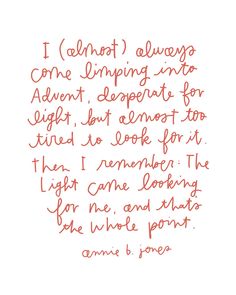 I (almost) always
come limping into
Advent, desperate for
light, but almost too
tired to look for it.
Then I remember: The
Light came looking
for me, and thats
the whole point.
annie b. jones